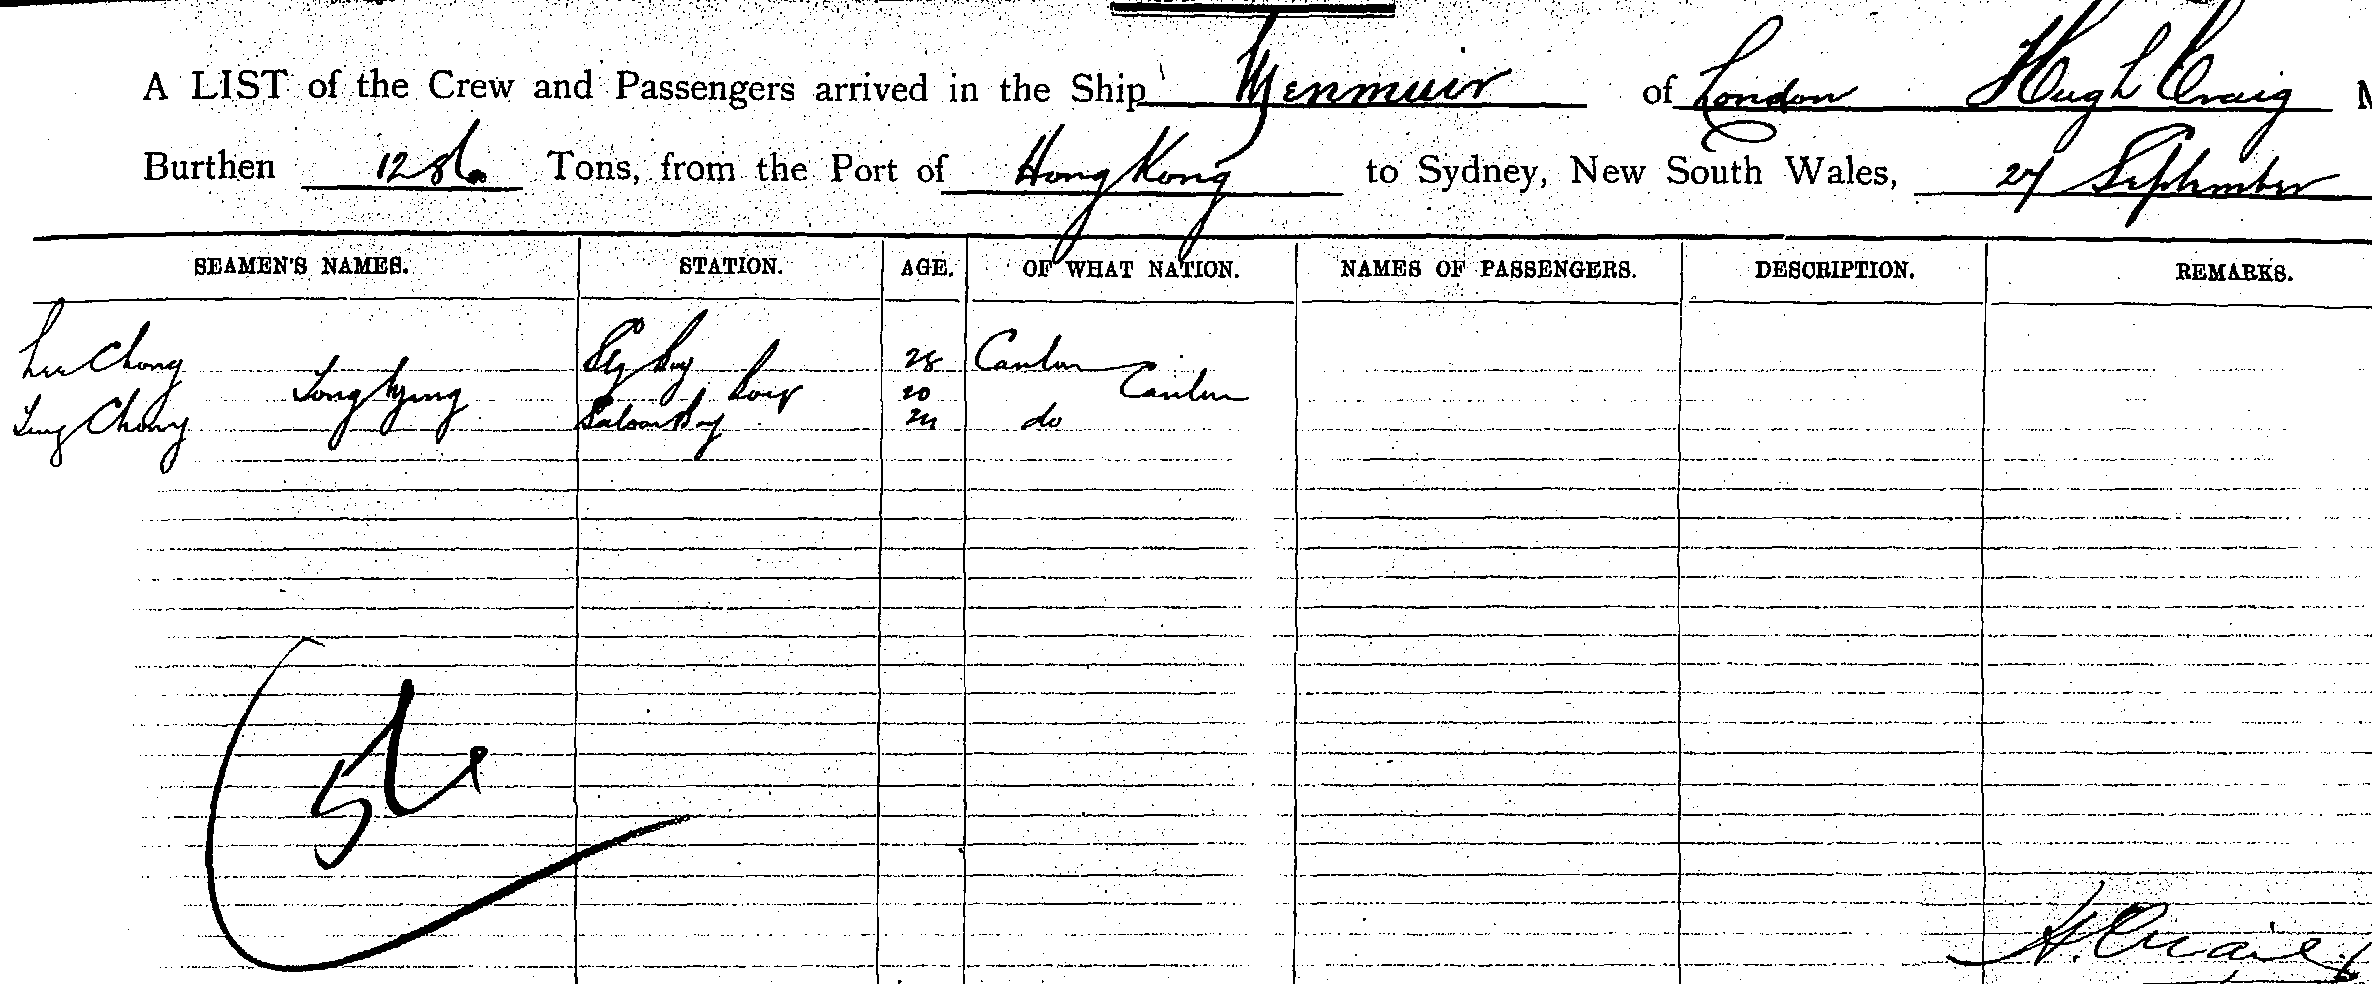 A LIST of the Crew and Passengers arrived in the Ship Menmuir of London Hugh Craig
Burthen 1286 Tons, from the Port of Hong Kong to Sydney, New South Wales, 27 September
SEAMEN'S NAMES. STATION. AGE. OF WHAT NATION. NAMES OF PASSENGERS. DESCRIPTION. REMARKS.
Chong 28 Canton
20 Canton
Chong Saloon Boy do
H. Craig